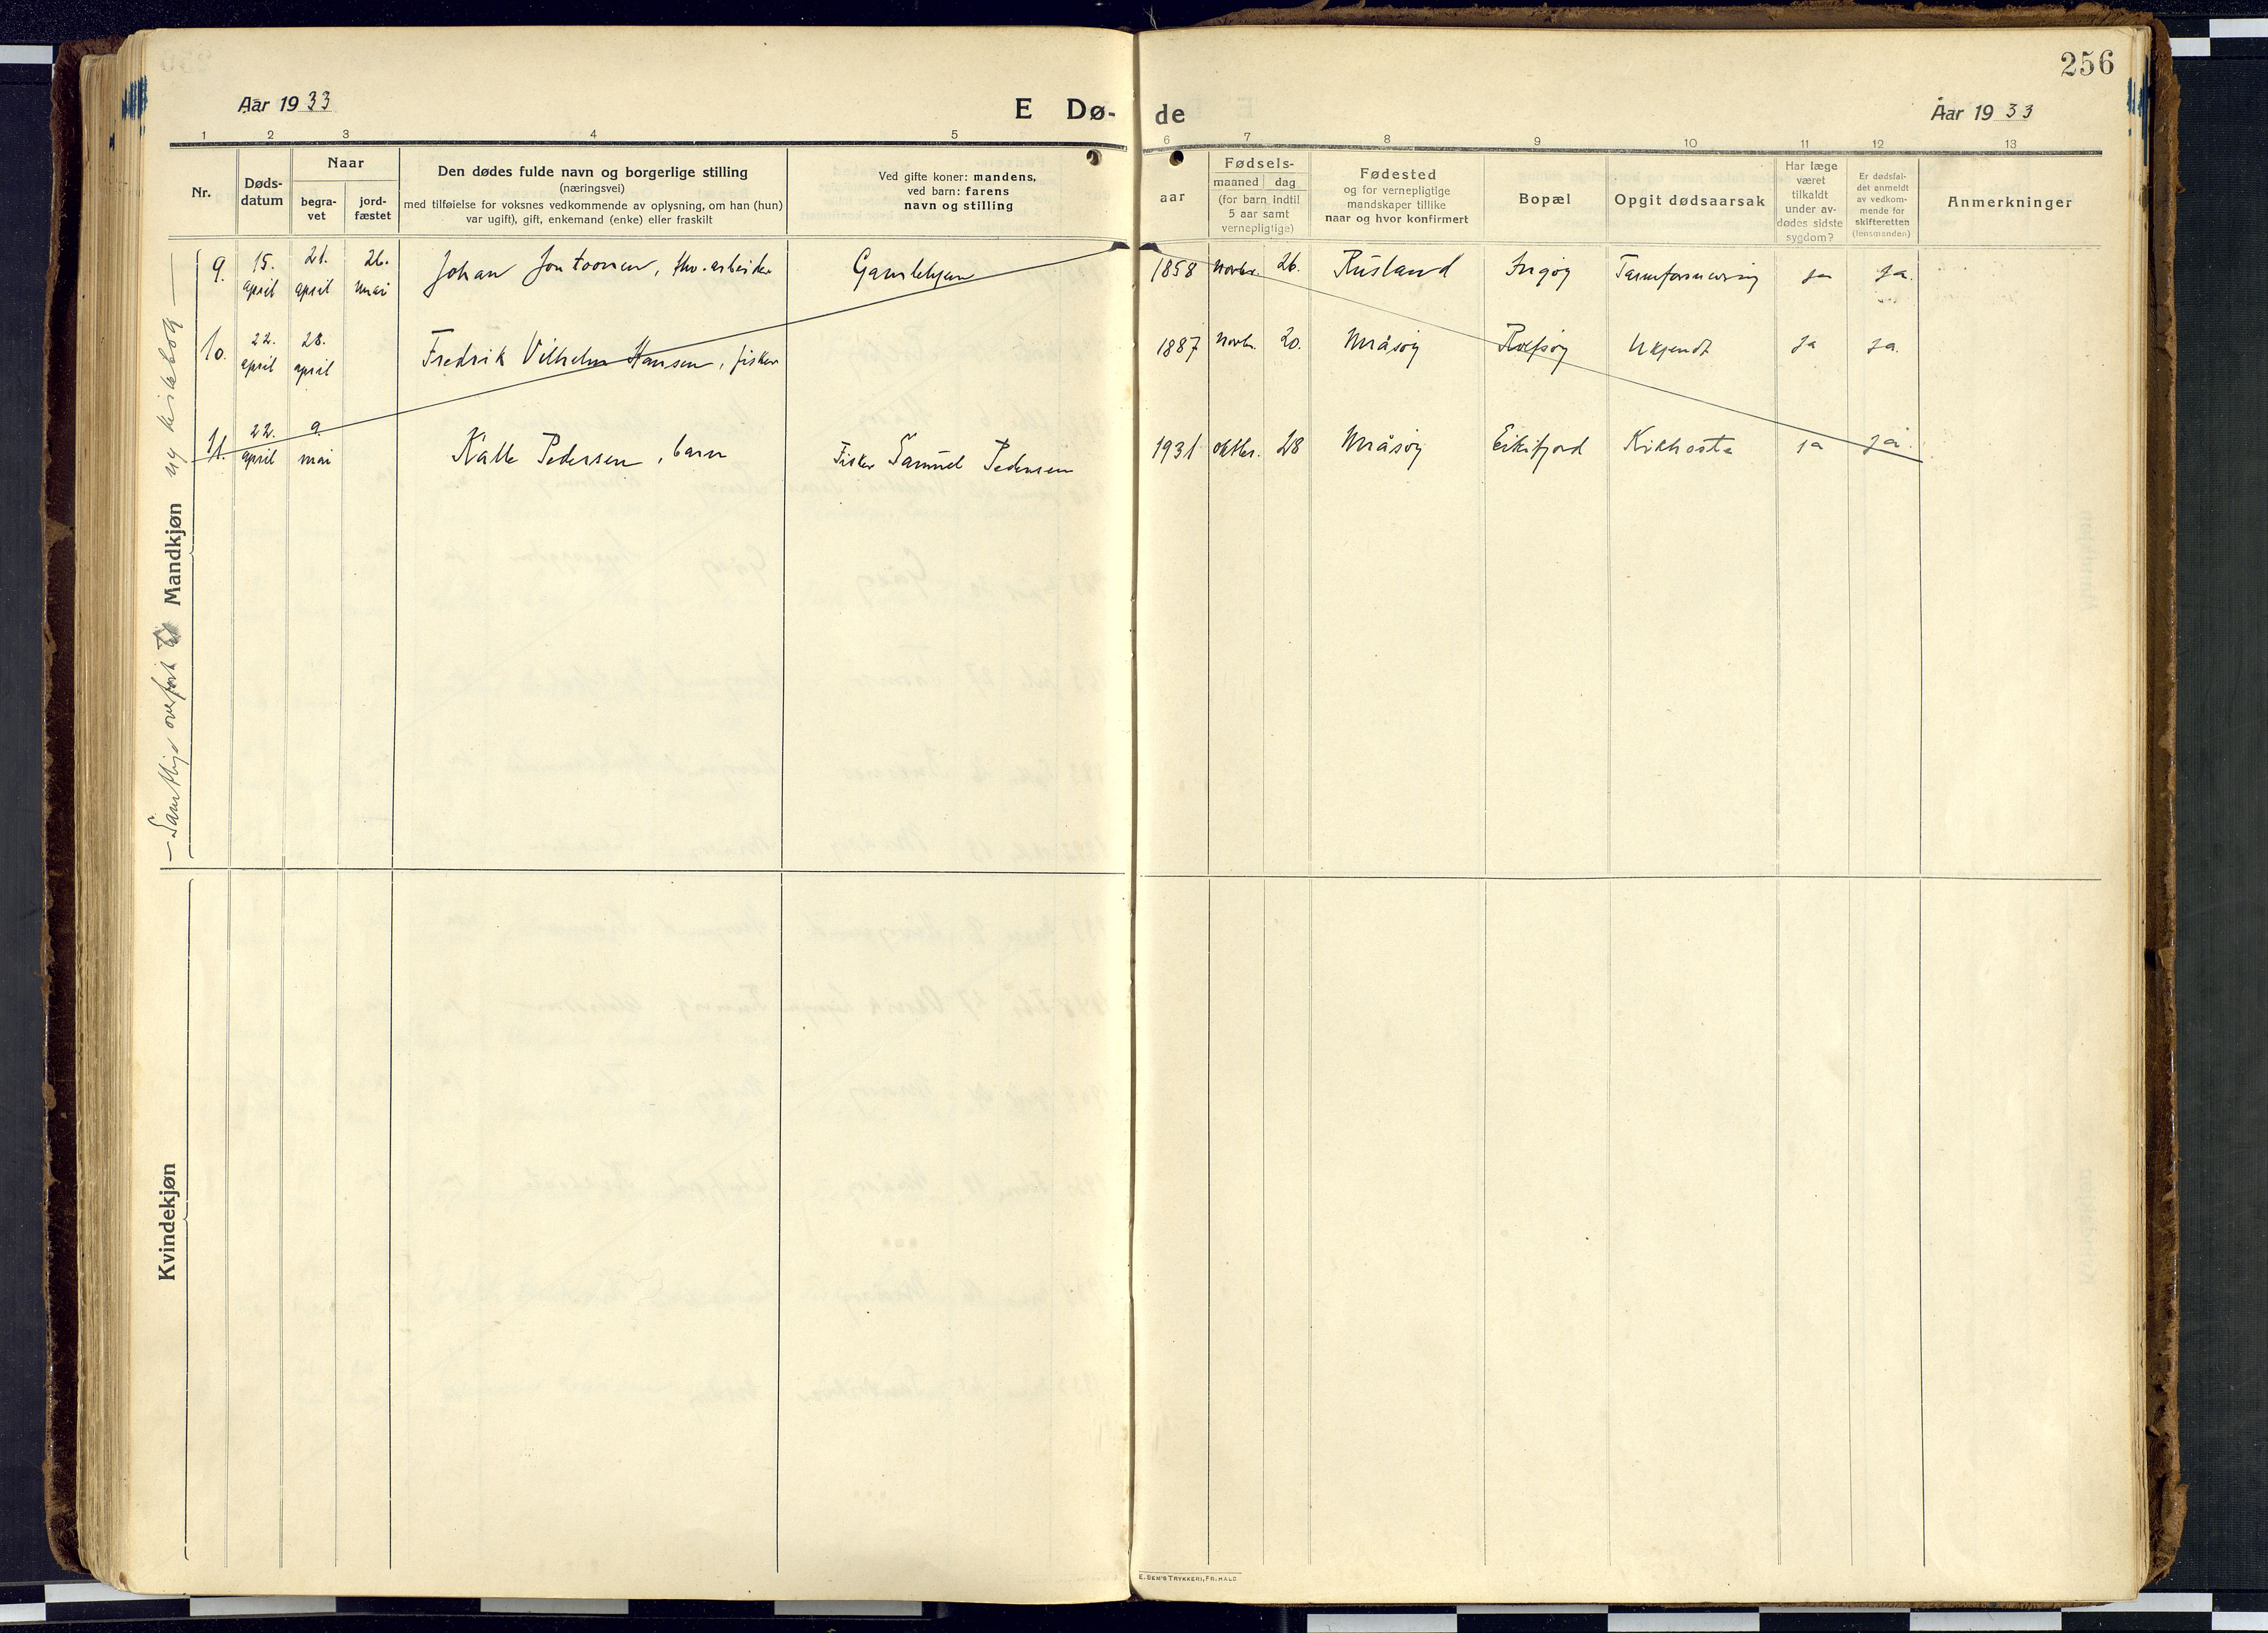 256
Aar 1933
E Dø-
de
Aar 1933
1 2 3 4 5 6 7 8 9 10 11 12 13
Nr.
Døds-
datum
Naar
begra-
vet
jord-
fæstet
Den dødes fulde navn og borgerlige stilling
(næringsvei)
med tilføielse for voksnes vedkommende av oplysning, om han (hun)
var ugift), gift, enkemand (enke) eller fraskilt
Ved gifte koner: mandens,
ved barn: farens
navn og stilling
aar
Fødsels-
maaned dag
(for barn indtil
5 aar samt
vernepligtige)
Fødested
og for vernepligtige
mandskaper tillike
naar og hvor konfirmert
Bopæl
Opgit dødsaarsak
Har læge
været
tilkaldt
under av-
dødes sidste
sygdom?
Er dødsfal-
det anmeldt
av vedkom-
mende for
skifteretten
(lensmanden)
Anmerkninger
9. 15. april 21. april 26. mai Johan, fhv. arbeider Gamlehjem 1858 Novbr. 26. Rusland Ingøy ja ja.
10. 22. april 28. april Fredrik Vilhelm Hansen, fisker 1887 Novbr. 20. Måsøy Rolfsøy Ukjendt ja ja.
11. 22. april 9. mai Kalle Pedersen, barn Fisker Samuel Pedersen 1931 oktbr. 28 Måsøy Eikifjord Kikhoste ja ja.
Samtlige overført til ny kirkebok
Mandkjøn
Kvindekjøn
E. SEM'S TRYKKERI, FR.HALD